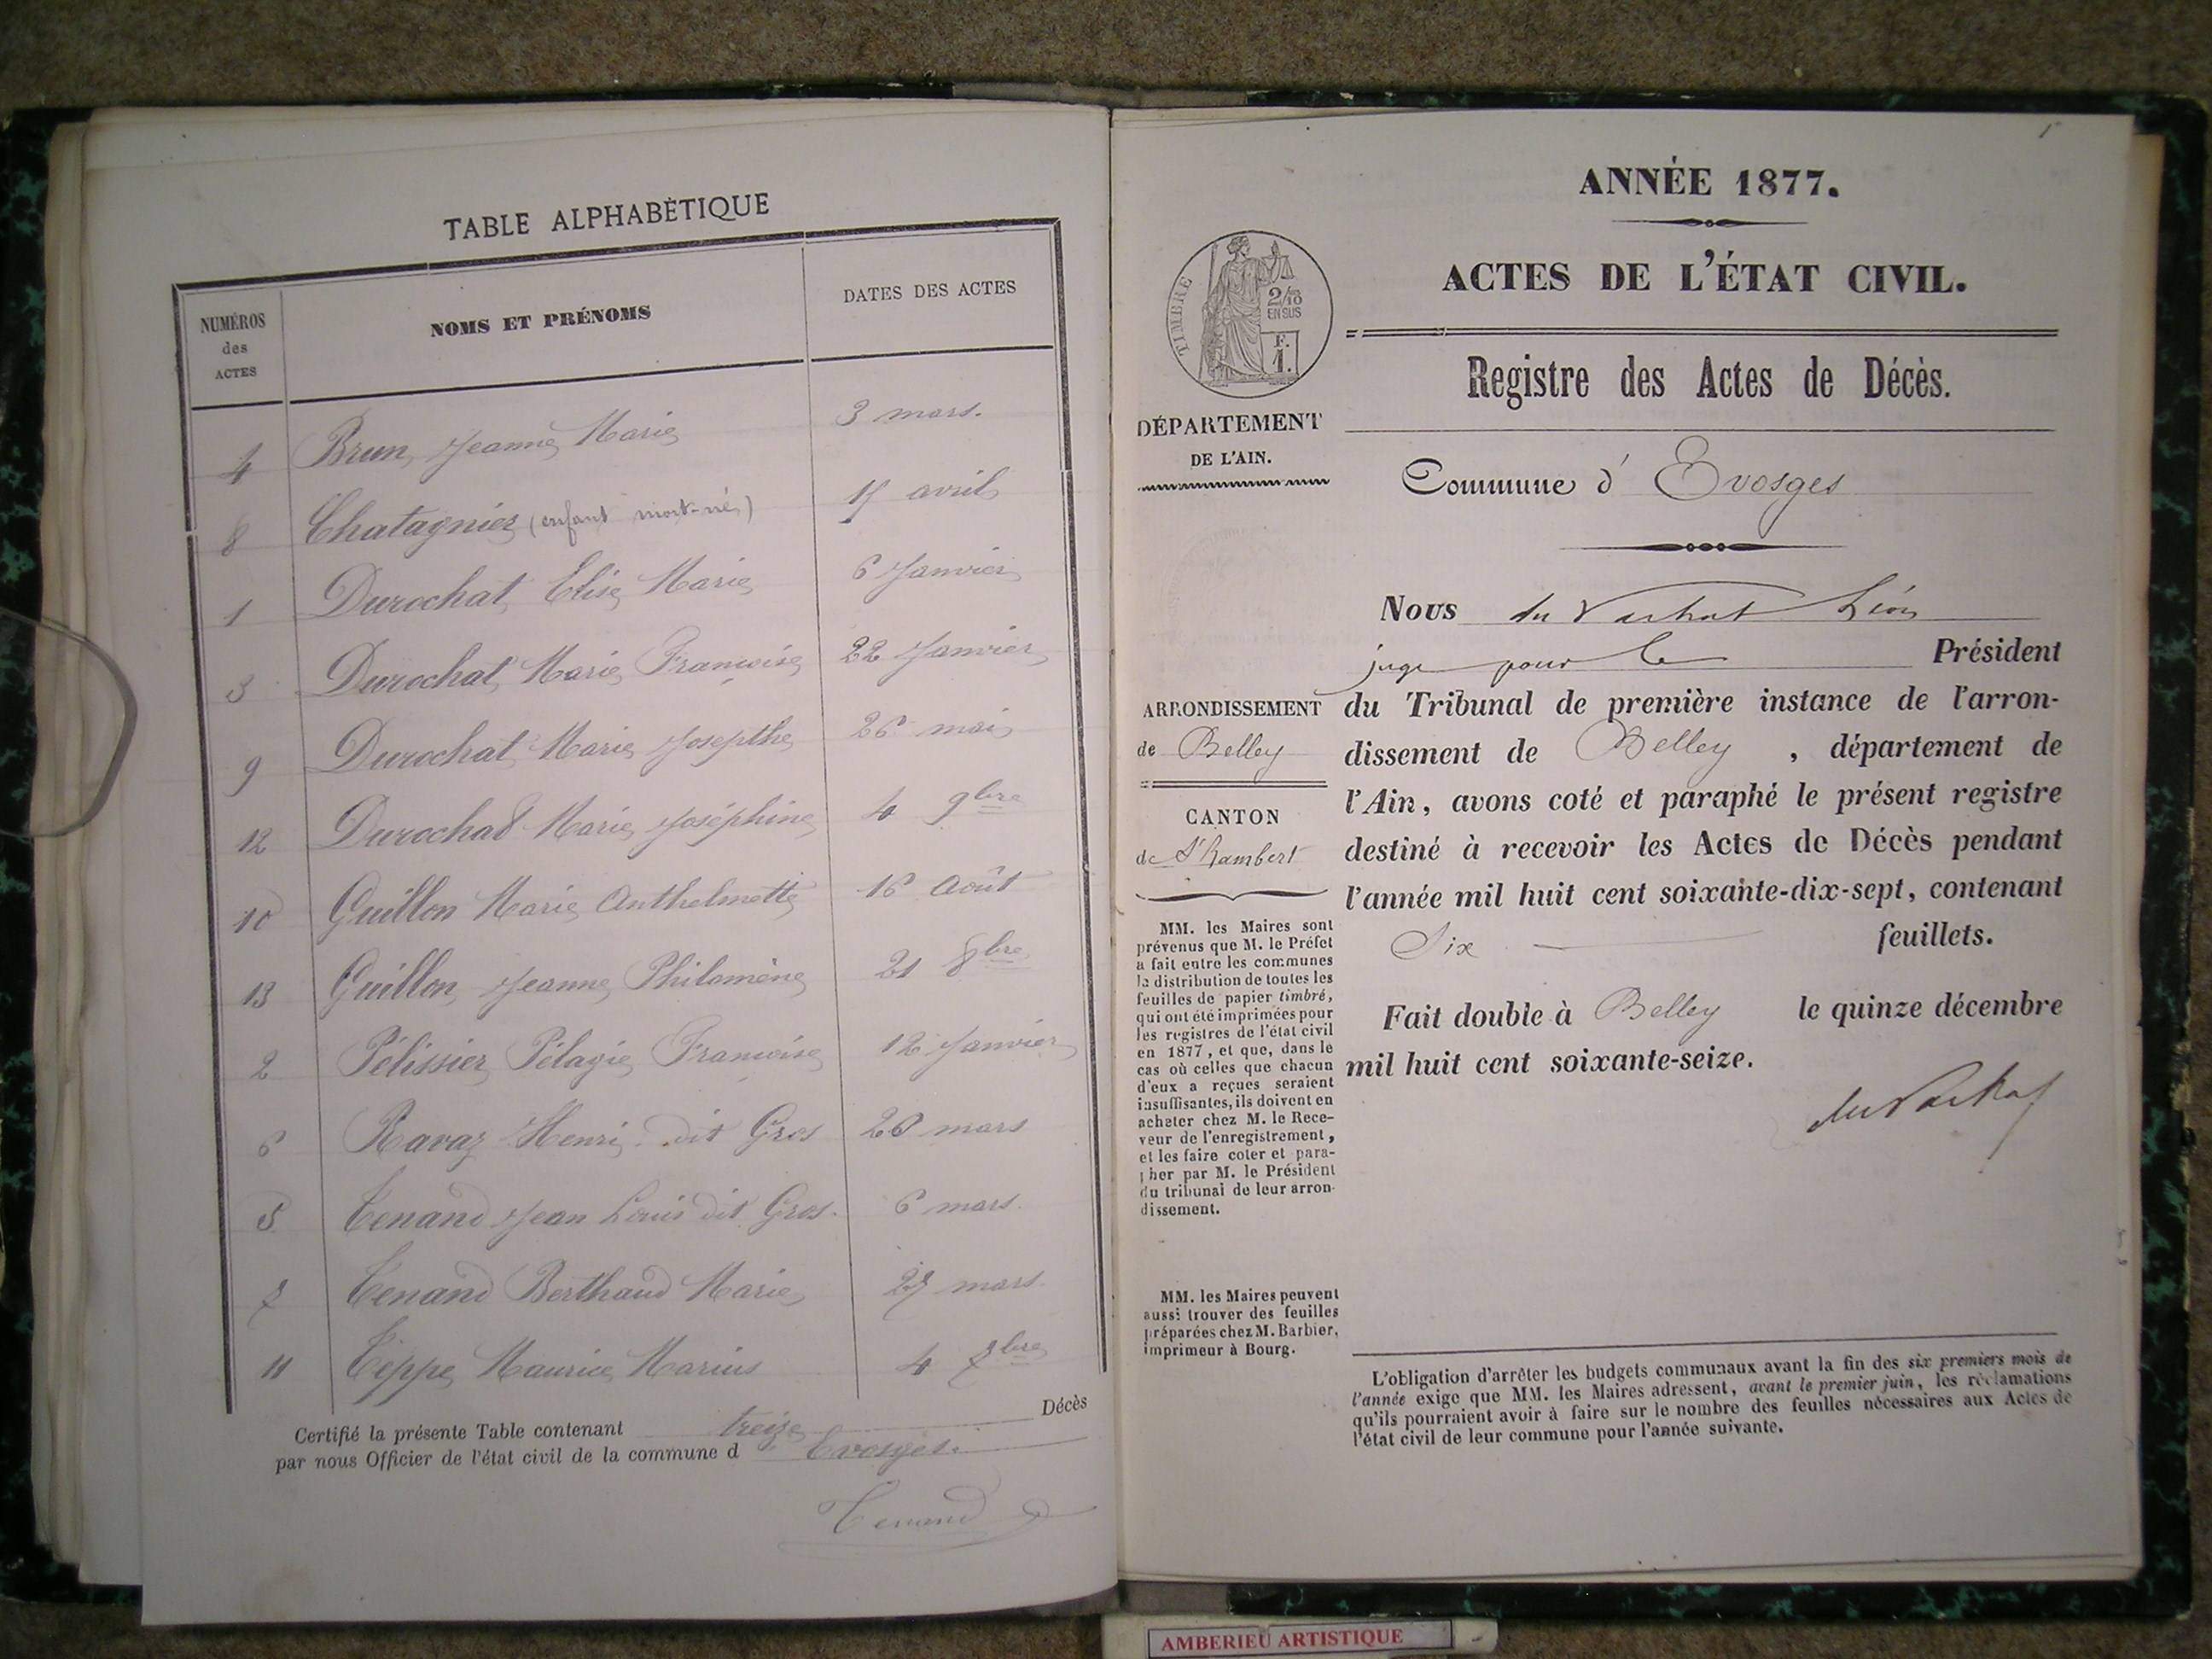 TABLE ALPHABÈTIQUE
NUMÉROS des ACTES
NOMS ET PRÉNOMS
DATES DES ACTES
4 Brun, Jeanne Marie 3 mars.
8 Chatagnier (enfant mort-né) 15 avril
1 Durochat, Elise Marie 6 Janvier
3 Durochat, Marie Françoise 22 Janvier
9 Durochat, Marie Josepthe 26 mai
12 Durochat Marie Joséphine 4 9bre
10 Guillon Marie Anthelmette 16 Août
13 Guillon, Jeanne Philomène 21 8bre
2 Pélissier, Pélagie Françoise 12 Janvier
6 Ravaz Henri dit Gros 20 mars
5 Tenand Jean Louis dit Gros. 6 mars.
7 Tenand Berthaud Marie mars.
11 Teppe Maurice Marius 4 7bre
Certifié la présente Table contenant treize Décès
par nous Officier de l'état civil de la commune d Evosges.
Tenand
ANNÉE 1877.
ACTES DE L'ÉTAT CIVIL.
TIMBRE
2/10
EN SUS
F.
1.
Registre des Actes de Décès.
DÉPARTEMENT
DE L'AIN.
Commune d' Evosges
Nous Léon
juge pour le Président
du Tribunal de première instance de l'arron-
dissement de Belley , département de
l'Ain, avons coté et paraphé le présent registre
destiné à recevoir les Actes de Décès pendant
l'année mil huit cent soixante-dix-sept, contenant
Six feuillets.
Fait double à Belley le quinze décembre
mil huit cent soixante-seize.
ARRONDISSEMENT
de Belley
CANTON
de St Rambert
MM. les Maires sont
prévenus que M. le Préfet
a fait entre les communes
la distribution de toutes les
feuilles de papier timbré,
qui ont été imprimées pour
les registres de l'état civil
en 1877, et que, dans le
cas où celles que chacun
d'eux a reçues seraient
insuffisantes, ils doivent en
acheter chez M. le Rece-
veur de l'enregistrement,
et les faire coter et para-
pher par M. le Président
du tribunal de leur arron-
dissement.
MM. les Maires peuvent
aussi trouver des feuilles
préparées chez M. Barbier,
imprimeur à Bourg.
L'obligation d'arrêter les budgets communaux avant la fin des six premiers mois de
l'année exige que MM. les Maires adressent, avant le premier juin, les réclamations
qu'ils pourraient avoir à faire sur le nombre des feuilles nécessaires aux Actes de
l'état civil de leur commune pour l'année suivante.
AMBERIEU ARTISTIQUE